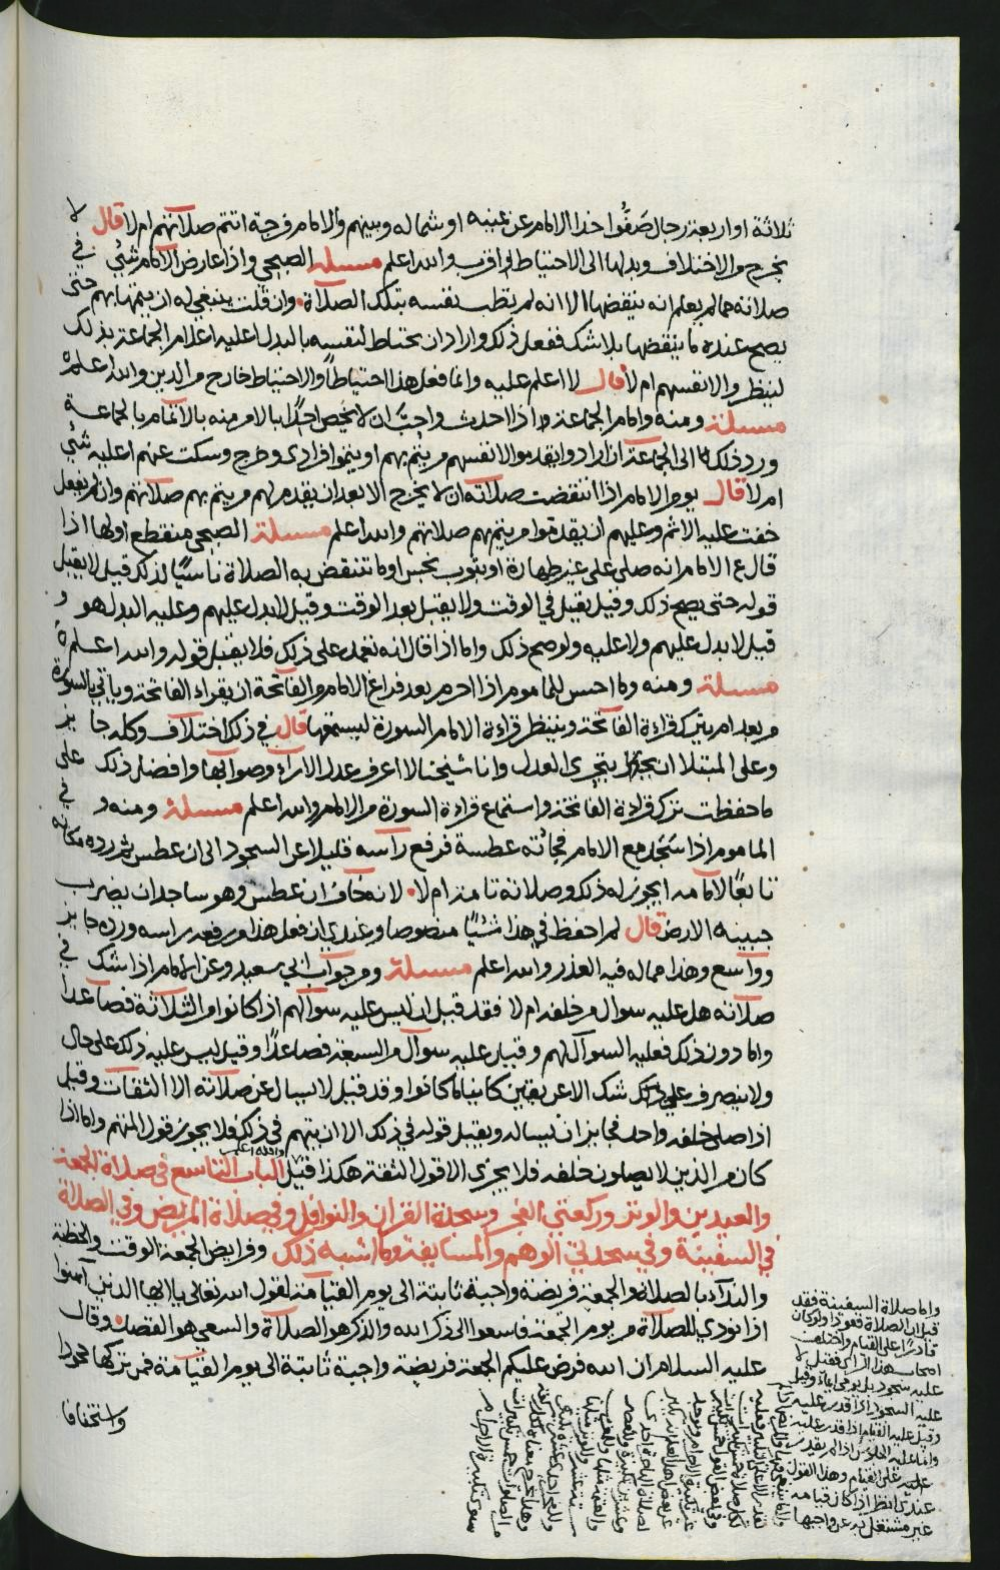 ثلاثة او اربعة رجال صَفُّوا حذا الامام عن يمينه او شماله وبينهم والامام فرجة اتتم صلاتهم ام لا قال لا
يخرج من الاختلاف وبدلها الى الاحتياط اقرب والله اعلم مسئلة الصبحي واذا عارض الامام شئ في
صلاته مما لم يعلم انه ينقضها الا انه لم تطب نفسه بتلك الصلاة وان قلت ينبغي له ان يتمها بهم حتى
يصح عنده ما ينقضها بلا شك ففعل ذلك واراد ان يحتاط لنفسه بالبدل اعليه اعلام الجماعة بذلك
لينظروا لانفسهم ام لا قال لا اعلم عليه وانما فعل هذا احتياطاً والاحتياط خارج من الدين والله اعلم
مسئلة ومنه وامام الجماعة اذا احدث واجب ان لا يخص احدًا بالامر منه بالاتمام بالجماعة
ورد ذلك الى الجماعة ان ارادوا يقدموا لانفسهم من يتم بهم او يتموا فرادى وخرج وسكت عنهم اعليه شئ
ام لا قال يؤمر الامام اذا انتقضت صلاته ان لا يخرج الا بعد ان يقدم لهم من يتم بهم صلاتهم وان لم يفعل
خفت عليه الاثم وعليهم ان يقدموا من يتم بهم صلاتهم والله اعلم مسئلة الصبحي منقطع اولها اذا
قال الامام انه صلى على غير طهارة او بثوب نجس او ما تنتقض به الصلاة ناسيًا لذلك قيل لا يقبل
قوله حتى يصح ذلك وقيل يقبل في الوقت ولا يقبل بعد الوقت وقيل لا بدل عليهم وعليه البدل هو و
قيل لا بدل عليهم ولا عليه ولو صح ذلك واما اذا قال انه تعمد على ذلك فلا يقبل قوله والله اعلم
مسئلة ومنه وما احسن للماموم اذا احرم بعد فراغ الامام من الفاتحة ان يقراء الفاتحة وياتي بالسورة
من بعد ام يترك قراءة الفاتحة وينتظر قراءة الامام السورة ليستمعها قال في ذلك اختلاف وكله جايز
وعلى المبتلا ان يتحرى العدل وانا شيخنا لا اعرف عدل الاراء وصوابها وافضل ذلك على
ما حفظت ترك قراءة الفاتحة واستماع قراءة السورة من الامام والله اعلم مسئلة ومنه و في
الماموم اذا سَجَد مع الامام فجائته عطسة فرفع راسه قليلا عن السجود الى ان عطس ثم رده مكانه
تابعًا لامامه ايجوز له ذلك وصلاته تامة ام لا لانه خاف ان عطس وهو ساجد ان يضرب
جبينه الارض قال لم احفظ في هذا شيئًا منصوصا وعندي ان فعل هذا من رفعه راسه ورده جايز
وواسع وهذا مما له فيه العذر والله اعلم مسئلة ومن جواب ابي سعيد وعن الامام اذا شك في
صلاته هل عليه سوال من خلفه ام لا فقد قيل ان ليس عليه سوالهم اذا كانوا من الثلاثة فصاعدا
واما دون ذلك فعليه السوال لهم وقيل عليه سوال من السبعة فصاعدًا وقيل ليس عليه ذلك على حال
ولا ينصرف على شك الا عن يقين كاينا ما كانوا وقد قيل لا يسال عن صلاته الا الثقات وقيل
اذا صلى خلفه واحد فجايز ان يساله ويقبل قوله في ذلك الا ان يتهم في ذلك فلا يجوز قول المتهم واما اذا
كان من الذين لا يصلون خلفه فلا يجزي الا قول الثقة هكذا قيل والله اعلم الباب التاسع في صلاة الجمعة
والعيدين والوتر وركعتي الفجر وسجدة القران والنوافل وفي صلاة المريض وفي الصلاة
في السفينة وفي سجدتي الوهم والمسايفة وما اشبه ذلك وفرايض الجمعة الوقت والخطبة
والنداء بالصلاة والجمعة فريضة واجبة ثابتة الى يوم القيامة لقول الله تعالى يا ايها الذين آمنوا
اذا نودي للصلاة من يوم الجمعة فاسعوا الى ذكر الله والذكر هو الصلاة والسعي هو القصد وقال
عليه السلام ان الله فرض عليكم الجمعة فريضة واجبة ثابتة الى يوم القيامة فمن تركها جحودا
واستخفافا
واما صلاة السفينة فقد
قيل ان الصلاة قعودا ولو كان
قادرًا على القيام واختلف
اصحاب هذا الراي فقيل لا
عليه سجود بل يومي ايماء وقيل
عليه السجود اذا قدر عليه
وقيل عليه القيام اذا قدر عليه
وانما عليه الجلوس اذا لم يقدر
على القيام وهذا القول
عندي انظر اذا كان قيامه
غير مشتغل به عن واجبها